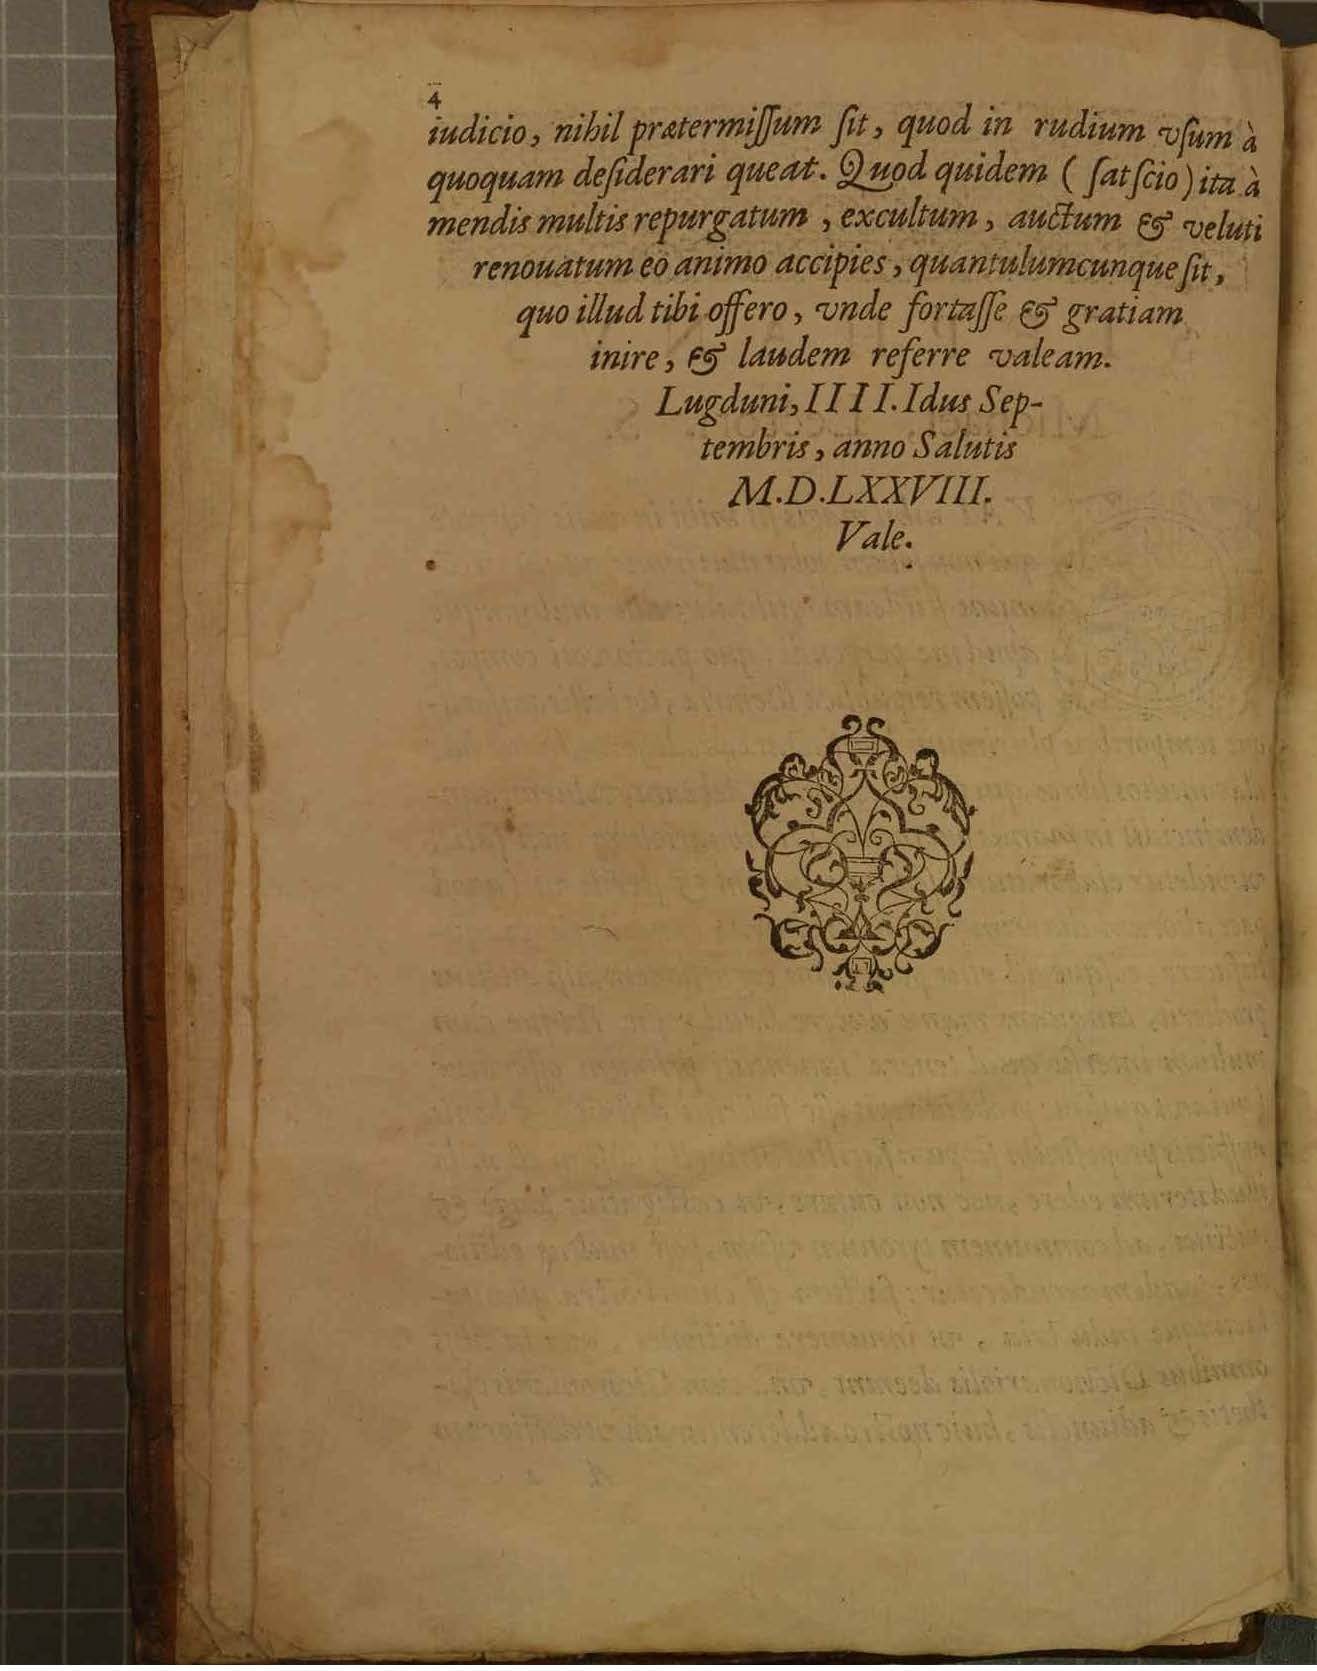 4
iudicio, nihil prætermiſſum ſit, quod in rudium vſum à
quoquam deſiderari queat. Quod quidem ( ſat ſcio) ita à
mendis multis repurgatum, excultum, auctum & veluti
renouatum eo animo accipies, quantulumcunque ſit,
quo illud tibi offero, vnde fortaſſe & gratiam
inire, & laudem referre valeam.
Lugduni, IIII. Idus Sep-
tembris, anno Salutis
M.D.LXXVIII.
Vale.